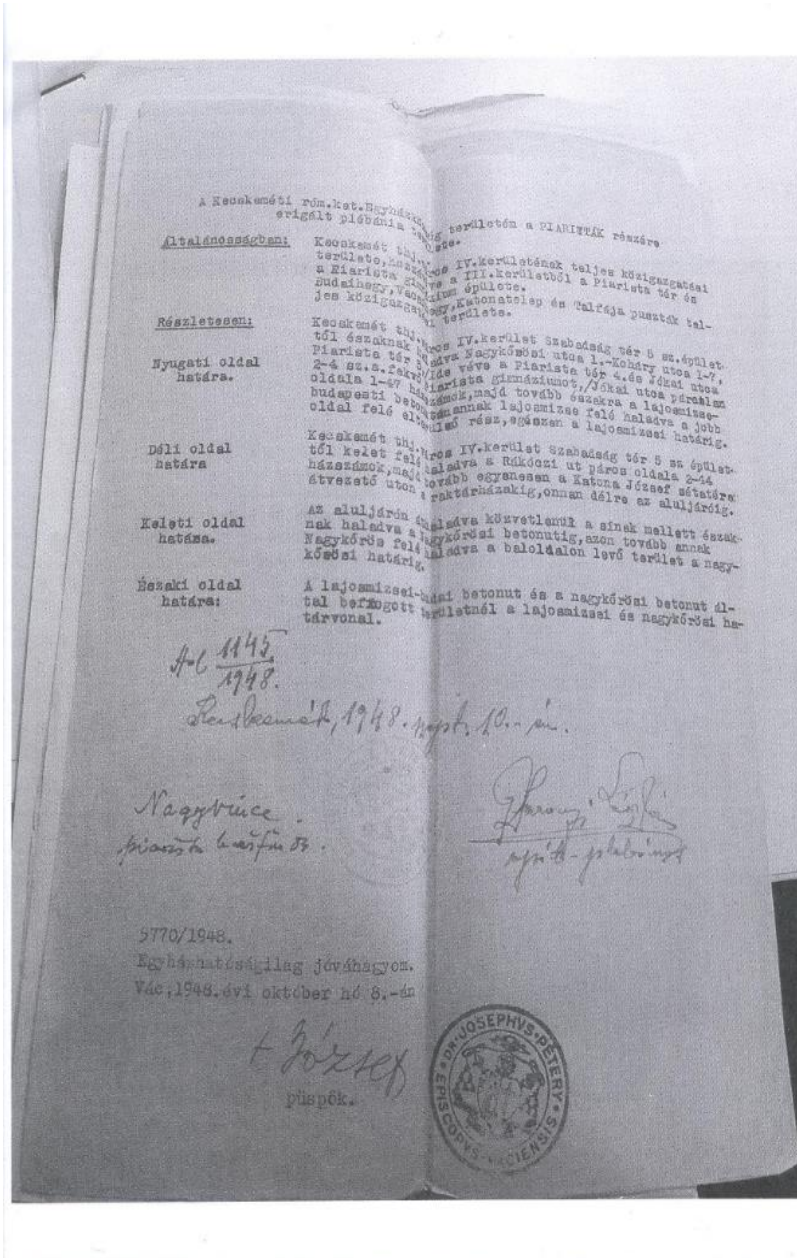 A Kecskeméti róm.kat.Egyházközség területén a PIARISTÁK részére
erigált plébánia területe.
Általánosságban: Kecskemét thj.város IV.kerületének teljes közigazgatási
területe, hozzávéve a III.kerületből a Piarista tér és
a Piarista gimnázium épülete.
Budaihegy, Vacsihegy, Katonatelep és Talfája puszták tel-
jes közigazgatási területe.
Részletesen: Kecskemét thj.város IV.kerület Szabadság tér 5 sz.épület-
től északnak haladva Nagykőrösi utca 1.-Koháry utca 1-7,
Nyugati oldal Piarista tér /Ide véve a Piarista tér 4.és Jókai utca
határa. 2-4 sz.a.fekvő Piarista gimnáziumot,/Jókai utca páratlan
oldala 1-47 házszámok,majd tovább északra a lajosmizse-
budapesti betonúton annak lajosmizse felé haladva a jobb
oldal felé eltérülő rész,egészen a lajosmizsei határig.
Déli oldal Kecskemét thj.város IV.kerület Szabadság tér 5 sz épület-
határa től kelet felé haladva a Rákóczi ut páros oldala 2-44
házszámok,majd tovább egyenesen a Katona József sétatéren
átvezető uton a raktárházakig,onnan délre az aluljáróig.
Keleti oldal Az aluljárón áthaladva közvetlenül a sinak mellett észak-
hatása. nak haladva a nagykőrösi betonutig,azon tovább annak
Nagykőrös felé haladva a baloldalon levő terület a nagy-
kőrösi határig.
Északi oldal A lajosmizsei-budai betonut és a nagykőrösi betonut ál-
határa: tal befogott területnél a lajosmizsei és nagykőrösi ha-
tárvonal.
1145
1948.
Kecskemét, 1948. szept. 10.-én.
Nagy Vince
piarista házfőnök.
5770/1948.
Egyházhatóságilag jóváhagyom.
Vác,1948.évi október hó 8.-án
+ József
püspök.
DR·JOSEPHVS·PÉTERY·EPISCOPVS·VACIENSIS